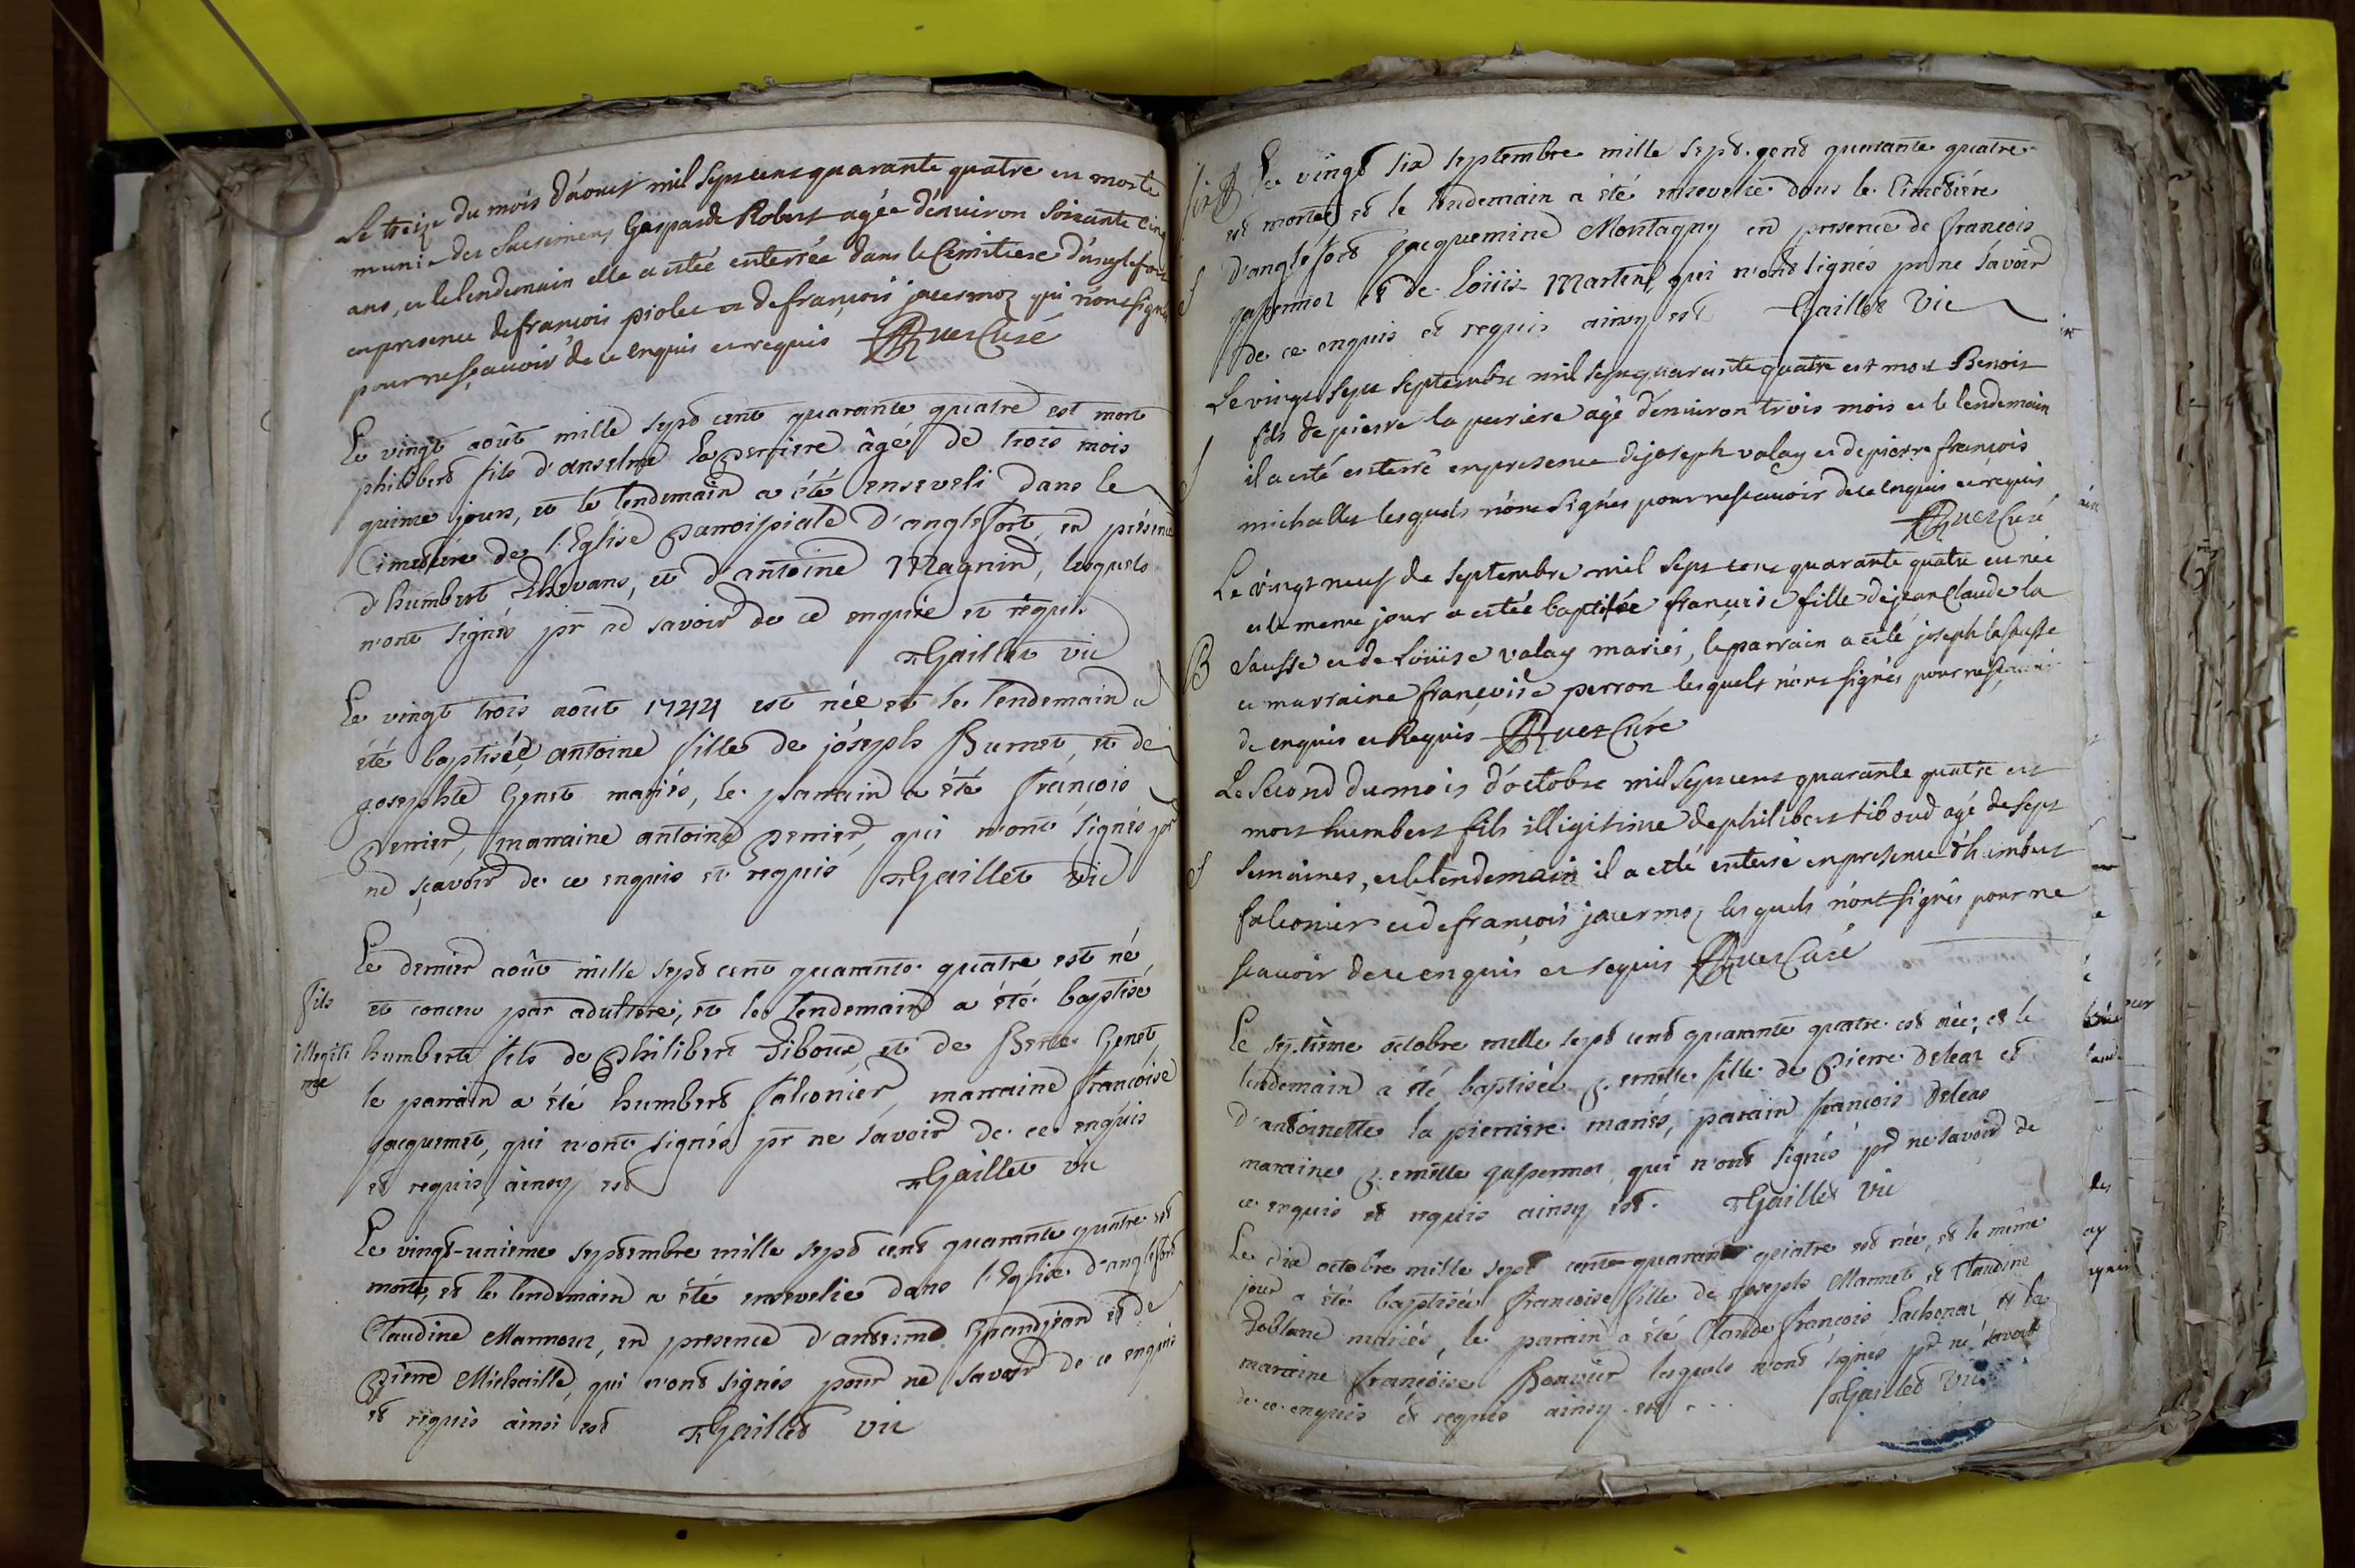 Le treize du mois d'aoust mil sept cent quarante quatre est morte
munie des sacremens Gasparde Robert agée d'environ soixante cinq
ans, et le lendemain elle a estée enterrée dans le cemitiere d'anglefort
en presence de françois piolet et de françois jacermoz qui n'ont signés
pour ne sçauoir de ce enquis et requis Ruez Curé
Le vingt août mille sept cent quarante quatre est mort
philibert fils d'anselme la perriere âgé de trois mois
quinze jours, et le lendemain a été enseveli dans le
Cimetière de l'Eglise parroissiale d'anglefort, en présence
d'humbert Thevans, et d'antoine Magnin, lesquels
n'ont signés pr ne savoir de ce enquis et requis
Gaillet vic
Le vingt trois août 1744 est née et le lendemain a
été baptisée antoine fille de joseph Burnet, et de
josephte Genet mariés, le parrain a été françois
Perrier, marraine antoine perrier, qui n'ont signés pr
ne sçavoir de ce enquis et requis Gaillet vic
Le dernier août mille sept cent quarante quatre est né
fils
et concu par adultere, et le lendemain a été baptisé
illegiti
me
humbert fils de Philibert Tiboud et de Genet,
le parrain a été humbert falconier, marraine françoise
jacquemet, qui n'ont signés pr ne savoir de ce enquis
et requis ainsy est Gaillet vic
Le vingt-unieme septembre mille sept cent quarante quatre est
morte, et le lendemain a été ensevelie dans l'Eglise d'anglefort
Claudine Marmour, en presence d'anselme Grandjean et de
Pierre Michaille, qui n'ont signés pour ne savoir de ce enquis
et requis ainsi est Gaillet vic
Le vingt six septembre mille sept cent quarante quatre
est morte et le lendemain a été ensevelie dans le Cimetière
d'anglefort jacquemine Montagny en presence de françois
jasermoz et de Loüis Martin, qui n'ont signés pr ne sàvoir
de ce enquis et requis ainsy est Gaillet Vic
Le vingt sept septembre mil sept quarante quatre est mort Benoit
fils de pierre la perriere agé d'environ trois mois et le lendemain
S
il a esté enterré en presence de joseph valay et de pierre françois
michallet lesquels n'ont signés pour ne scauoir de ce enquis et requis
Ruez Curé
Le vingt neuf de septembre mil sept cent quarante quatre est née
et le meme jour a estée baptisée françoise fille de jean Claude la
B
sausse et de Loüise valay mariés, le parrain a esté joseph lasausse
et marraine françoise perron lesquels n'ont signés pour ne scauoir
de enquis et Requis Ruez Curé
Le second du mois d'octobre mil sept cent quarante quatre est
mort humbert fils illigitime de philibert tiboud agé de sept
S
semaines, et le lendemain il a esté enterré en presence d'humbert
falconier et de françois jacermoz lesquels n'ont signés pour ne
scauoir de ce enquis et requis Ruez Curé
Le septième octobre mille sept cent quarante quatre est née, et le
lendemain a été baptisée fille de Pierre Deleaz et
d'antoinette la pierriere mariés, parain françois Deleas
maraine jassermoz, qui n'ont signés pr ne savoir de
ce enquis et requis ainsy est. Gaillet vic
Le dix octobre mille sept cent quarante quatre est née, et le même
jour a été baptisée françoise fille de joseph Marmet et Claudine
Deblanc mariés, le parain a été Claude françois Lachenaz et la
maraine françoise Bonvier lesquels n'ont signés pr ne savoir
de ce enquis et requis ainsy est ... Gaillet Vic